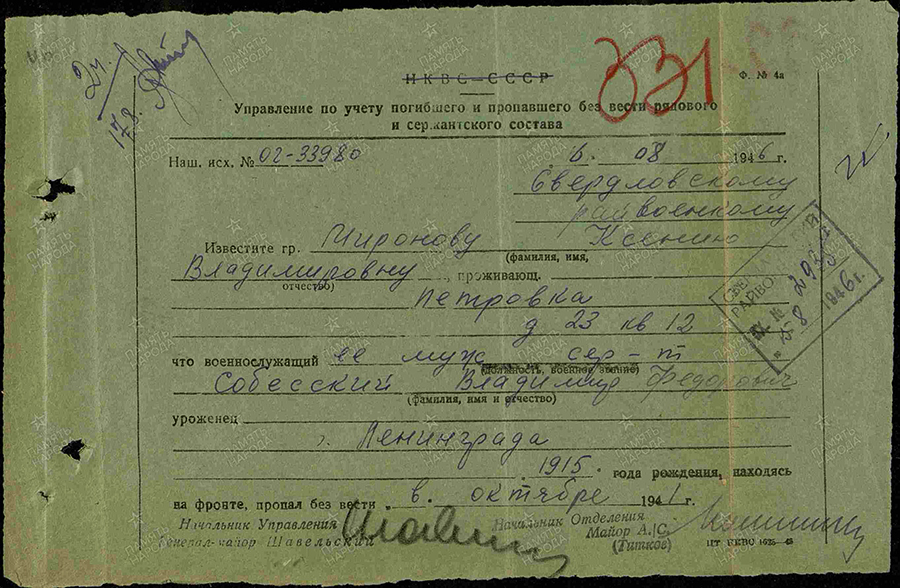 331
27.
178.
НКВС–СССР
Ф. № 4а
Управление по учету погибшего и пропавшего без вести рядового
и сержантского состава
Наш. исх. № 02-33980
6. 08 1946 г.
Свердловскому
райвоенкому
Известите гр. Миронову Ксению
(фамилия, имя,
Владимировну, проживающ.
отчество)
Петровка
д 23 кв 12
что военнослужащий ее муж сер-т
(должность, военное звание)
Собесский Владимир Федорович
(фамилия, имя и отчество)
уроженец
г. Ленинграда
1915. года рождения, находясь
на фронте, пропал без вести в. октябре 1941 г.
Начальник Управления
Генерал-майор Шавельский
Начальник Отделения
Майор А/С.
(Титков)
РАЙВО
8
1946 г.
ПАМЯТЬ НАРОДА